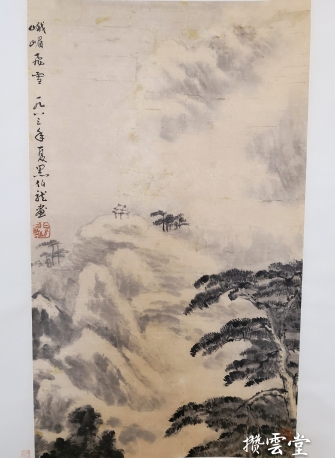 峨嵋飛雪 一九八三年夏黑伯龍畫
攒雲堂